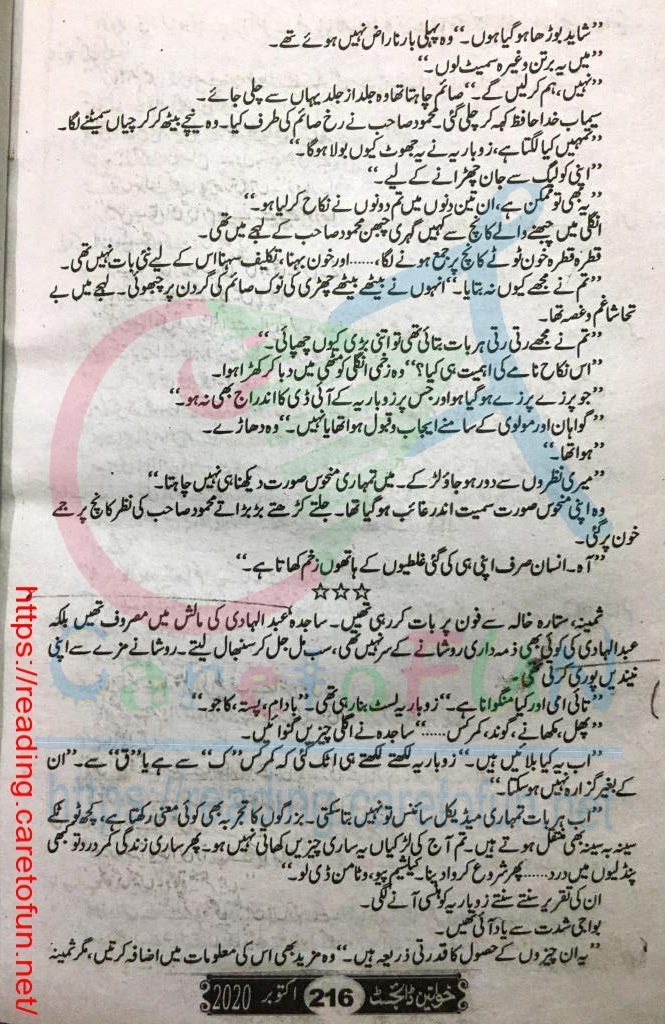 ”شاید بوڑھا ہوگیا ہوں۔“ وہ پہلی بار ناراض نہیں ہوئے تھے۔
”میں یہ برتن وغیرہ سمیٹ لوں۔“
”نہیں، ہم کرلیں گے۔“ صائم چاہتا تھا وہ جلد از جلد یہاں سے چلی جائے۔
سیماب خدا حافظ کہہ کر چلی گئی۔ محمود صاحب نے رخ صائم کی طرف کیا۔ وہ نیچے بیٹھ کر کرچیاں سمیٹنے لگا۔
”تمہیں کیا لگتا ہے، زوباریہ نے یہ جھوٹ کیوں بولا ہوگا۔“
”اپنی کولیگ سے جان چھڑانے کے لیے۔“
”یہ بھی تو ممکن ہے، ان تین دنوں میں تم دونوں نے نکاح کرلیا ہو۔“
انگلی میں چبھنے والے کانچ سے کہیں گہری چبھن محمود صاحب کے لہجے میں تھی۔
قطرہ قطرہ خون ٹوٹے کانچ پر جمع ہونے لگا،......اور خون بہنا، تکلیف سہنا اس کے لیے نئی بات نہیں تھی۔
”تم نے مجھے کیوں نہ بتایا۔“ انہوں نے بیٹھے بیٹھے چھڑی کی نوک صائم کی گردن پر چبھوئی۔ لہجے میں بے
تحاشا غم و غصہ تھا۔
”تم نے مجھے رتی رتی ہر بات بتائی تھی تو اتنی بڑی کیوں چھپائی۔“
”اس نکاح نامے کی اہمیت ہی کیا؟“ وہ زخمی انگلی کو مٹھی میں دبا کر کھڑا ہوا۔
”جو پرزے پرزے ہوگیا ہو اور جس پر زوباریہ کے آئی ڈی کا اندراج بھی نہ ہو۔“
”گواہان اور مولوی کے سامنے ایجاب و قبول ہوا تھا یا نہیں۔“ وہ دھاڑے۔
”ہوا تھا۔“
”میری نظروں سے دور ہوجاؤ لڑکے۔ میں تمہاری منحوس صورت دیکھنا ہی نہیں چاہتا۔“
وہ اپنی منحوس صورت سمیت اندر غائب ہوگیا تھا۔ جلتے کڑھتے بڑبڑاتے محمود صاحب کی نظر کانچ پر جمے
خون پر گئی۔
”آہ۔ انسان صرف اپنی ہی کی گئی غلطیوں کے ہاتھوں زخم کھاتا ہے۔“
☆☆☆
ثمینہ، ستارہ خالہ سے فون پر بات کر رہی تھیں۔ ساجدہ عبدالہادی کی مالش میں مصروف تھیں بلکہ
عبدالہادی کی کوئی بھی ذمہ داری روشانے کے سر نہیں تھی، سب مل جل کر سنبھال لیتے۔ روشانے مزے سے اپنی
نیندیں پوری کرتی تھی۔
”تائی امی اور کیا منگوانا ہے۔“ زوباریہ لسٹ بنا رہی تھی۔ ”بادام، پستہ، کاجو۔“
”پھل، مکھانے، گوند، کمرکس......“ ساجدہ نے اگلی چیزیں گنوائیں۔
”اب یہ کیا بلائیں ہیں۔“ زوباریہ لکھتے لکھتے ہی اٹک گئی کہ کمرکس ”ک“ سے ہے یا ”ق“ سے۔ ”ان
کے بغیر گزارہ نہیں ہوسکتا۔“
”اب ہر بات تمہاری میڈیکل سائنس تو نہیں بتا سکتی۔ بزرگوں کا تجربہ بھی کوئی معنی رکھتا ہے، کچھ ٹوٹکے
سینہ بہ سینہ بھی منتقل ہوتے ہیں۔ تم آج کی لڑکیاں یہ ساری چیزیں کھاتی نہیں ہو۔ پھر ساری زندگی کمر درد تو کبھی
پنڈلیوں میں درد...... پھر شروع کروا دینا۔ کیلشیم پیو، وٹامن ڈی لو۔“
ان کی تقریر سنتے سنتے زوباریہ کو ہنسی آنے لگی۔
بواجی شدت سے یاد آئی تھیں۔
”یہ ان چیزوں کے حصول کا قدرتی ذریعہ ہیں۔“ وہ مزید بھی اس کی معلومات میں اضافہ کرتیں، مگر ثمینہ
خواتین ڈائجسٹ 216 اکتوبر 2020
https://reading.caretofun.net/
CaretoFUN
https://reading.caretofun.net